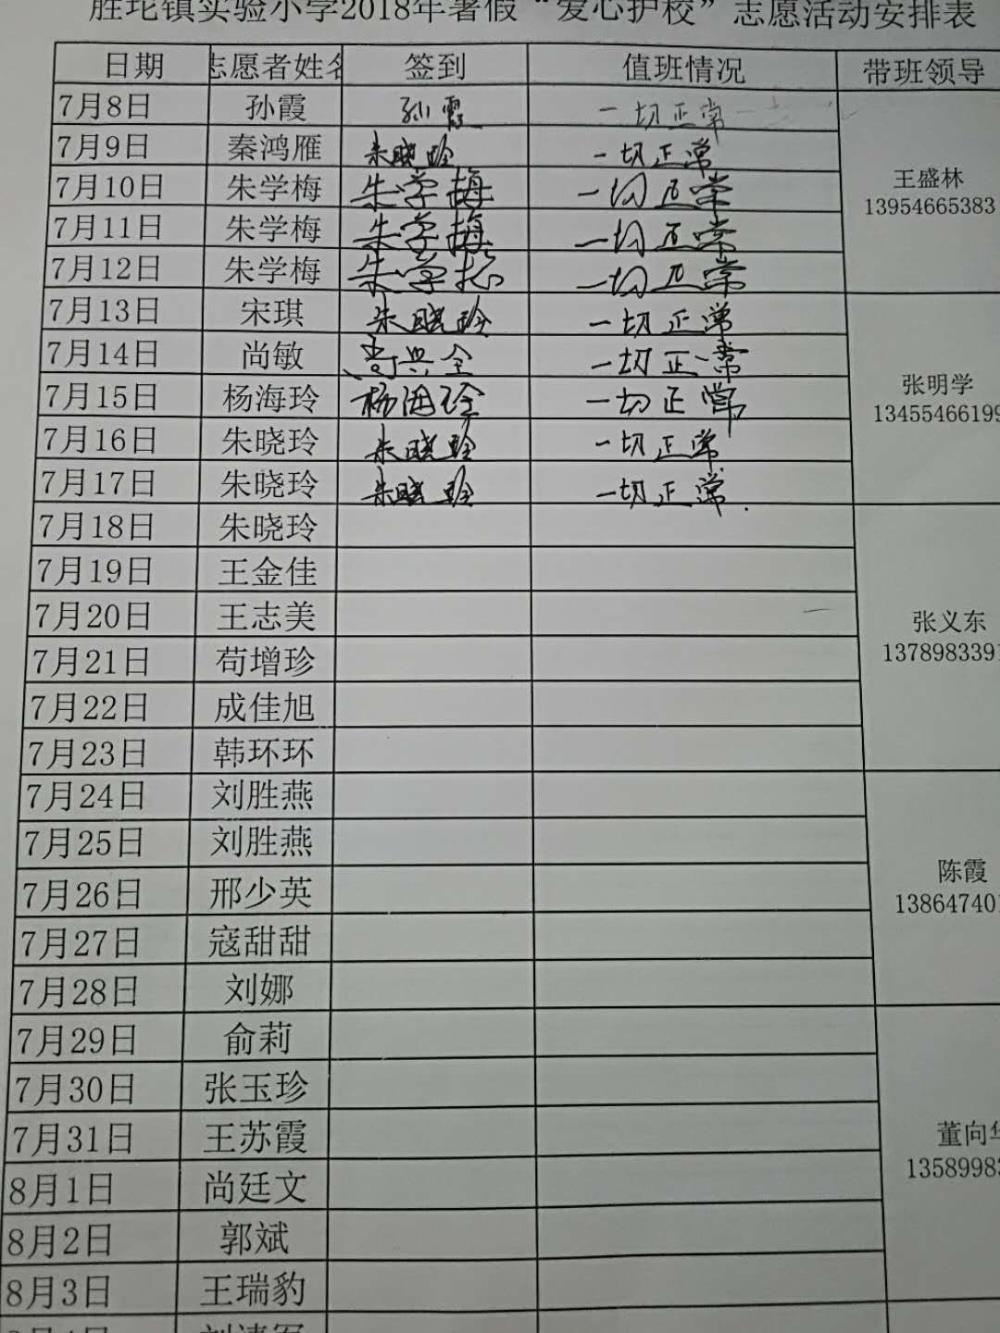 胜坨镇实验小学2018年暑假“爱心护校”志愿活动安排表
日期 志愿者姓名 签到 值班情况 带班领导
7月8日 孙霞 孙霞 一切正常
7月9日 秦鸿雁 朱晓玲 一切正常
王盛林
7月10日 朱学梅 朱学梅 一切正常
13954665383
7月11日 朱学梅 朱学梅 一切正常
7月12日 朱学梅 朱学梅 一切正常
7月13日 宋琪 朱晓玲 一切正常
7月14日 尚敏 尚兴全 一切正常
张明学
7月15日 杨海玲 杨海玲 一切正常
13455466199
7月16日 朱晓玲 朱晓玲 一切正常
7月17日 朱晓玲 朱晓玲 一切正常.
7月18日 朱晓玲
7月19日 王金佳
7月20日 王志美
张义东
7月21日 苟增珍
1378983391
7月22日 成佳旭
7月23日 韩环环
7月24日 刘胜燕
7月25日 刘胜燕
陈霞
7月26日 邢少英
1386474701
7月27日 寇甜甜
7月28日 刘娜
7月29日 俞莉
7月30日 张玉珍
7月31日 王苏霞
董向华
8月1日 尚廷文
13589983
8月2日 郭斌
8月3日 王瑞豹